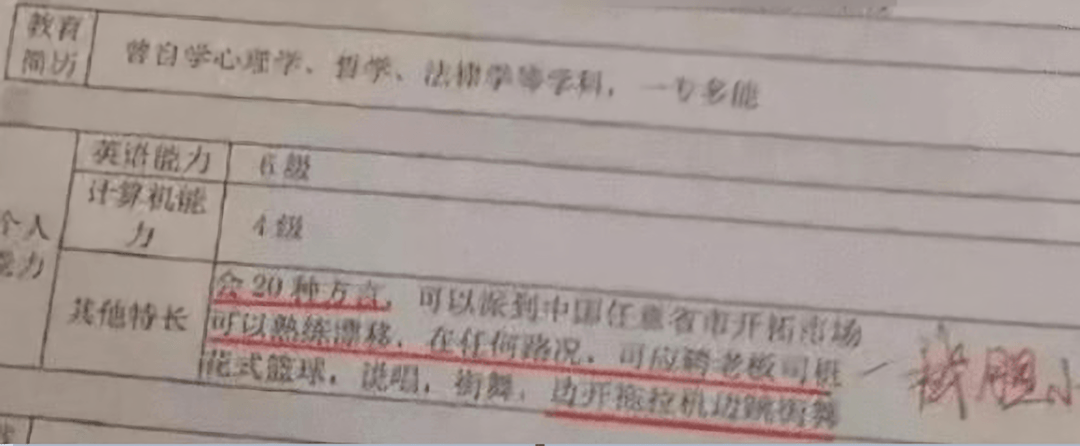 教育
简历
曾自学心理学、哲学、法律学等学科，一专多能
个人
能力
英语能力
6级
计算机能
力
4级
其他特长
会20种方言，可以派到中国任意省市开拓市场
可以熟练漂移，在任何路况，可应聘老板司机
花式篮球，说唱，街舞，边开拖拉机边跳街舞
我胆小